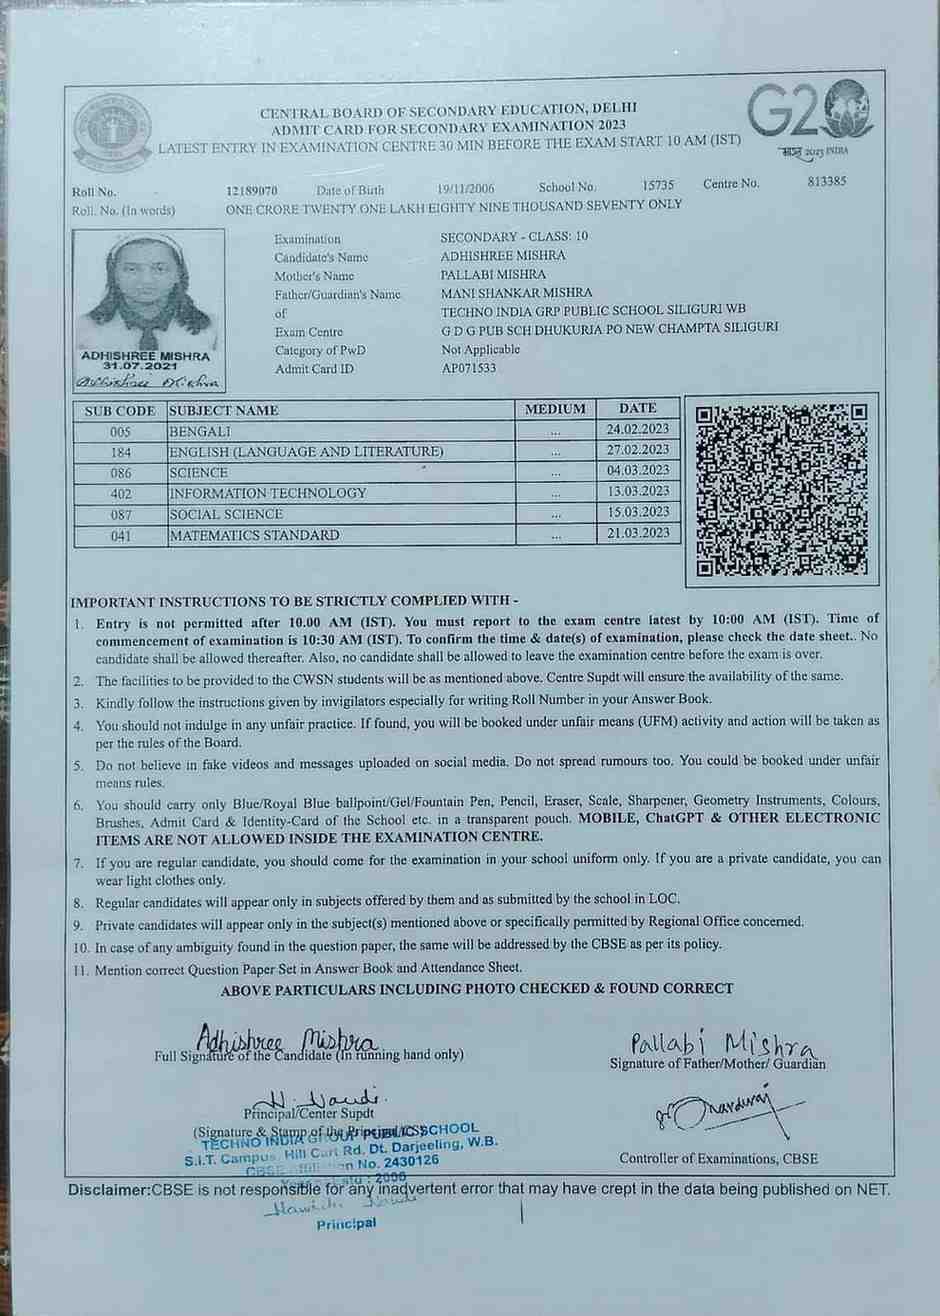 CENTRAL BOARD OF SECONDARY EDUCATION, DELHI
ADMIT CARD FOR SECONDARY EXAMINATION 2023
LATEST ENTRY IN EXAMINATION CENTRE 30 MIN BEFORE THE EXAM START 10 AM (IST)
G20
भारत 2023 INDIA
Roll No. 12189070 Date of Birth 19/11/2006 School No. 15735 Centre No. 813385
Roll. No. (In words) ONE CRORE TWENTY ONE LAKH EIGHTY NINE THOUSAND SEVENTY ONLY
Examination SECONDARY - CLASS: 10
Candidate's Name ADHISHREE MISHRA
Mother's Name PALLABI MISHRA
Father/Guardian's Name MANI SHANKAR MISHRA
of TECHNO INDIA GRP PUBLIC SCHOOL SILIGURI WB
Exam Centre G D G PUB SCH DHUKURIA PO NEW CHAMPTA SILIGURI
Category of PwD Not Applicable
Admit Card ID AP071533
ADHISHREE MISHRA
31.07.2021
Adhishree Mishra
SUB CODE SUBJECT NAME MEDIUM DATE
005 BENGALI ... 24.02.2023
184 ENGLISH (LANGUAGE AND LITERATURE) ... 27.02.2023
086 SCIENCE ... 04.03.2023
402 INFORMATION TECHNOLOGY ... 13.03.2023
087 SOCIAL SCIENCE ... 15.03.2023
041 MATEMATICS STANDARD ... 21.03.2023
IMPORTANT INSTRUCTIONS TO BE STRICTLY COMPLIED WITH -
1. Entry is not permitted after 10.00 AM (IST). You must report to the exam centre latest by 10:00 AM (IST). Time of
commencement of examination is 10:30 AM (IST). To confirm the time & date(s) of examination, please check the date sheet.. No
candidate shall be allowed thereafter. Also, no candidate shall be allowed to leave the examination centre before the exam is over.
2. The facilities to be provided to the CWSN students will be as mentioned above. Centre Supdt will ensure the availability of the same.
3. Kindly follow the instructions given by invigilators especially for writing Roll Number in your Answer Book.
4. You should not indulge in any unfair practice. If found, you will be booked under unfair means (UFM) activity and action will be taken as
per the rules of the Board.
5. Do not believe in fake videos and messages uploaded on social media. Do not spread rumours too. You could be booked under unfair
means rules.
6. You should carry only Blue/Royal Blue ballpoint/Gel/Fountain Pen, Pencil, Eraser, Scale, Sharpener, Geometry Instruments, Colours,
Brushes, Admit Card & Identity-Card of the School etc. in a transparent pouch. MOBILE, ChatGPT & OTHER ELECTRONIC
ITEMS ARE NOT ALLOWED INSIDE THE EXAMINATION CENTRE.
7. If you are regular candidate, you should come for the examination in your school uniform only. If you are a private candidate, you can
wear light clothes only.
8. Regular candidates will appear only in subjects offered by them and as submitted by the school in LOC.
9. Private candidates will appear only in the subject(s) mentioned above or specifically permitted by Regional Office concerned.
10. In case of any ambiguity found in the question paper, the same will be addressed by the CBSE as per its policy.
11. Mention correct Question Paper Set in Answer Book and Attendance Sheet.
ABOVE PARTICULARS INCLUDING PHOTO CHECKED & FOUND CORRECT
Adhishree Mishra
Full Signature of the Candidate (In running hand only)
Pallabi Mishra
Signature of Father/Mother/ Guardian
Principal/Center Supdt
(Signature & Stamp of the Principal/CS)
TECHNO INDIA GROUP PUBLIC SCHOOL
S.I.T. Campus, Hill Cart Rd. Dt. Darjeeling, W.B.
CBSE Affiliation No. 2430126
Controller of Examinations, CBSE
Disclaimer:CBSE is not responsible for any inadvertent error that may have crept in the data being published on NET.
Principal